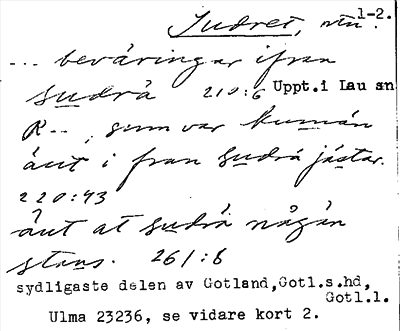 Sudret, ntn. 1-2.
... beväringar ifran
sudrå 210:6 Uppt.i Lau sn
R--, sum var kumän
äut i fran sudrå jästar.
220:43
äut at sudrå någän
stans. 261:6
sydligaste delen av Gotland,Gotl.s.hd,
Gotl.l.
Ulma 23236, se vidare kort 2.